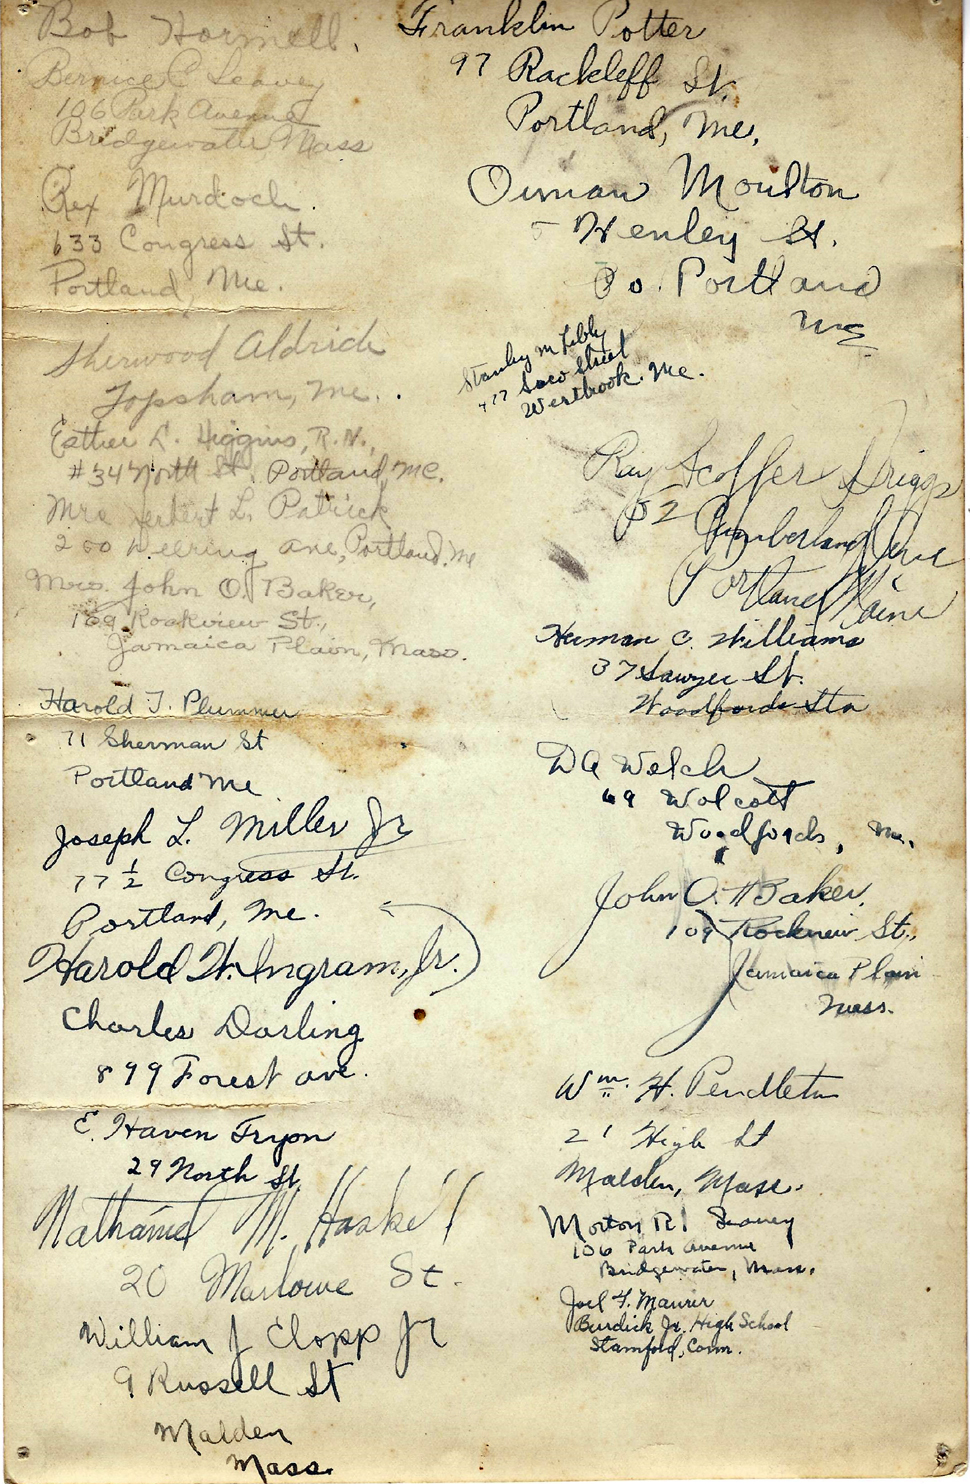 Bob Hormell.
Bernice C Seavey
106 Park Avenue
Bridgewater Mass
Rex Murdoch.
633 Congress St.
Portland, Me.
Sherwood Aldrich
Topsham, Me.
Esther L. Higgins, R.N.,
#34 North St. Portland, Me.
Mrs L. Patrick
200 Deering Ave, Portland. Me
Mrs. John O. Baker,
109 Rockview St.,
Jamaica Plain, Mass.
Harold T. Plummer
71 Sherman St
Portland Me
Joseph L. Miller Jr
77 ½ Congress St.
Portland, Me.
Harold W. Ingram, Jr.
Charles Darling
899 Forest ave.
E. Haven Tryon
29 North St
Nathaniel M. Haskell
20 Marlowe St.
William J Clopp Jr
9 Russell St
Malden
Mass.
Franklin Potter
97 Rackleff St.
Portland, Me.
Orman Moulton
5 Henley St.
So. Portland
Me
Stanley M Libby
477 Saco Street
Westbrook. Me.
Ray Driggs
52 Cumberland Ave
Portland Maine
Herman C. Williams
37 Sawyer St.
Woodfords Sta
D A Welch
69 Wolcott
Woodfords, Me.
John O. Baker.
109 Rockview St.,
Jamaica Plain
Mass.
Wm. H. Pendleton
21 High St
Malden, Mass.
Morton R. Seavey
106 Park Avenue
Bridgewater, Mass.
Joel F. Maurer
Burdick Jr. High School
Stamford, Conn.